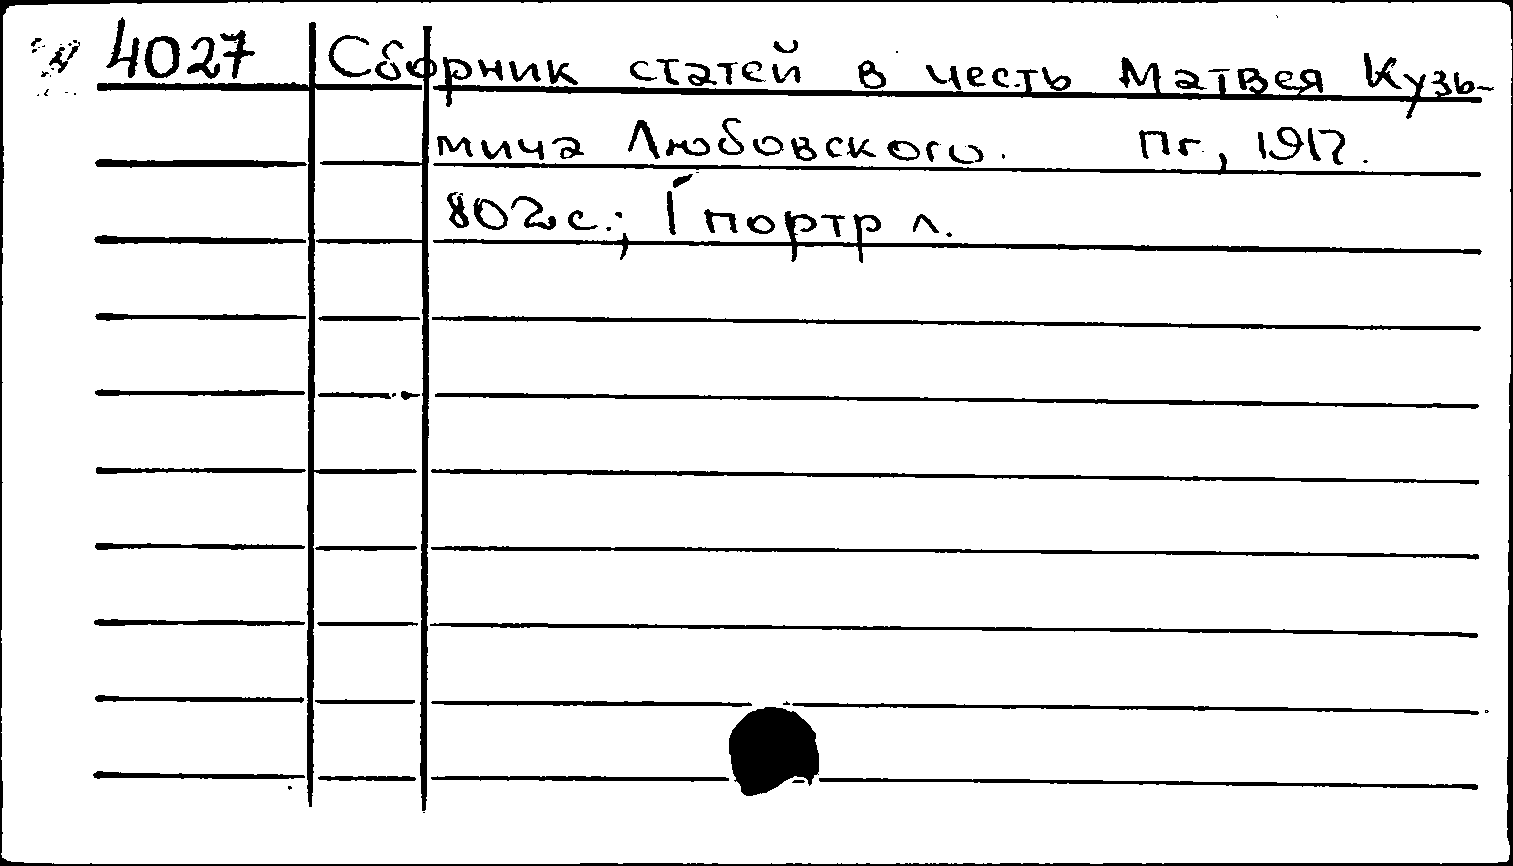 4027 Сборник статей в честь Матвея Кузь-
мича Любовского. Пг, 1917.
802 с.; 1 портр л.